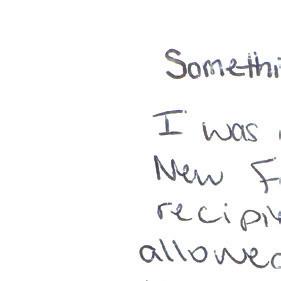 Somethi
I was
New F
recipi
allowed